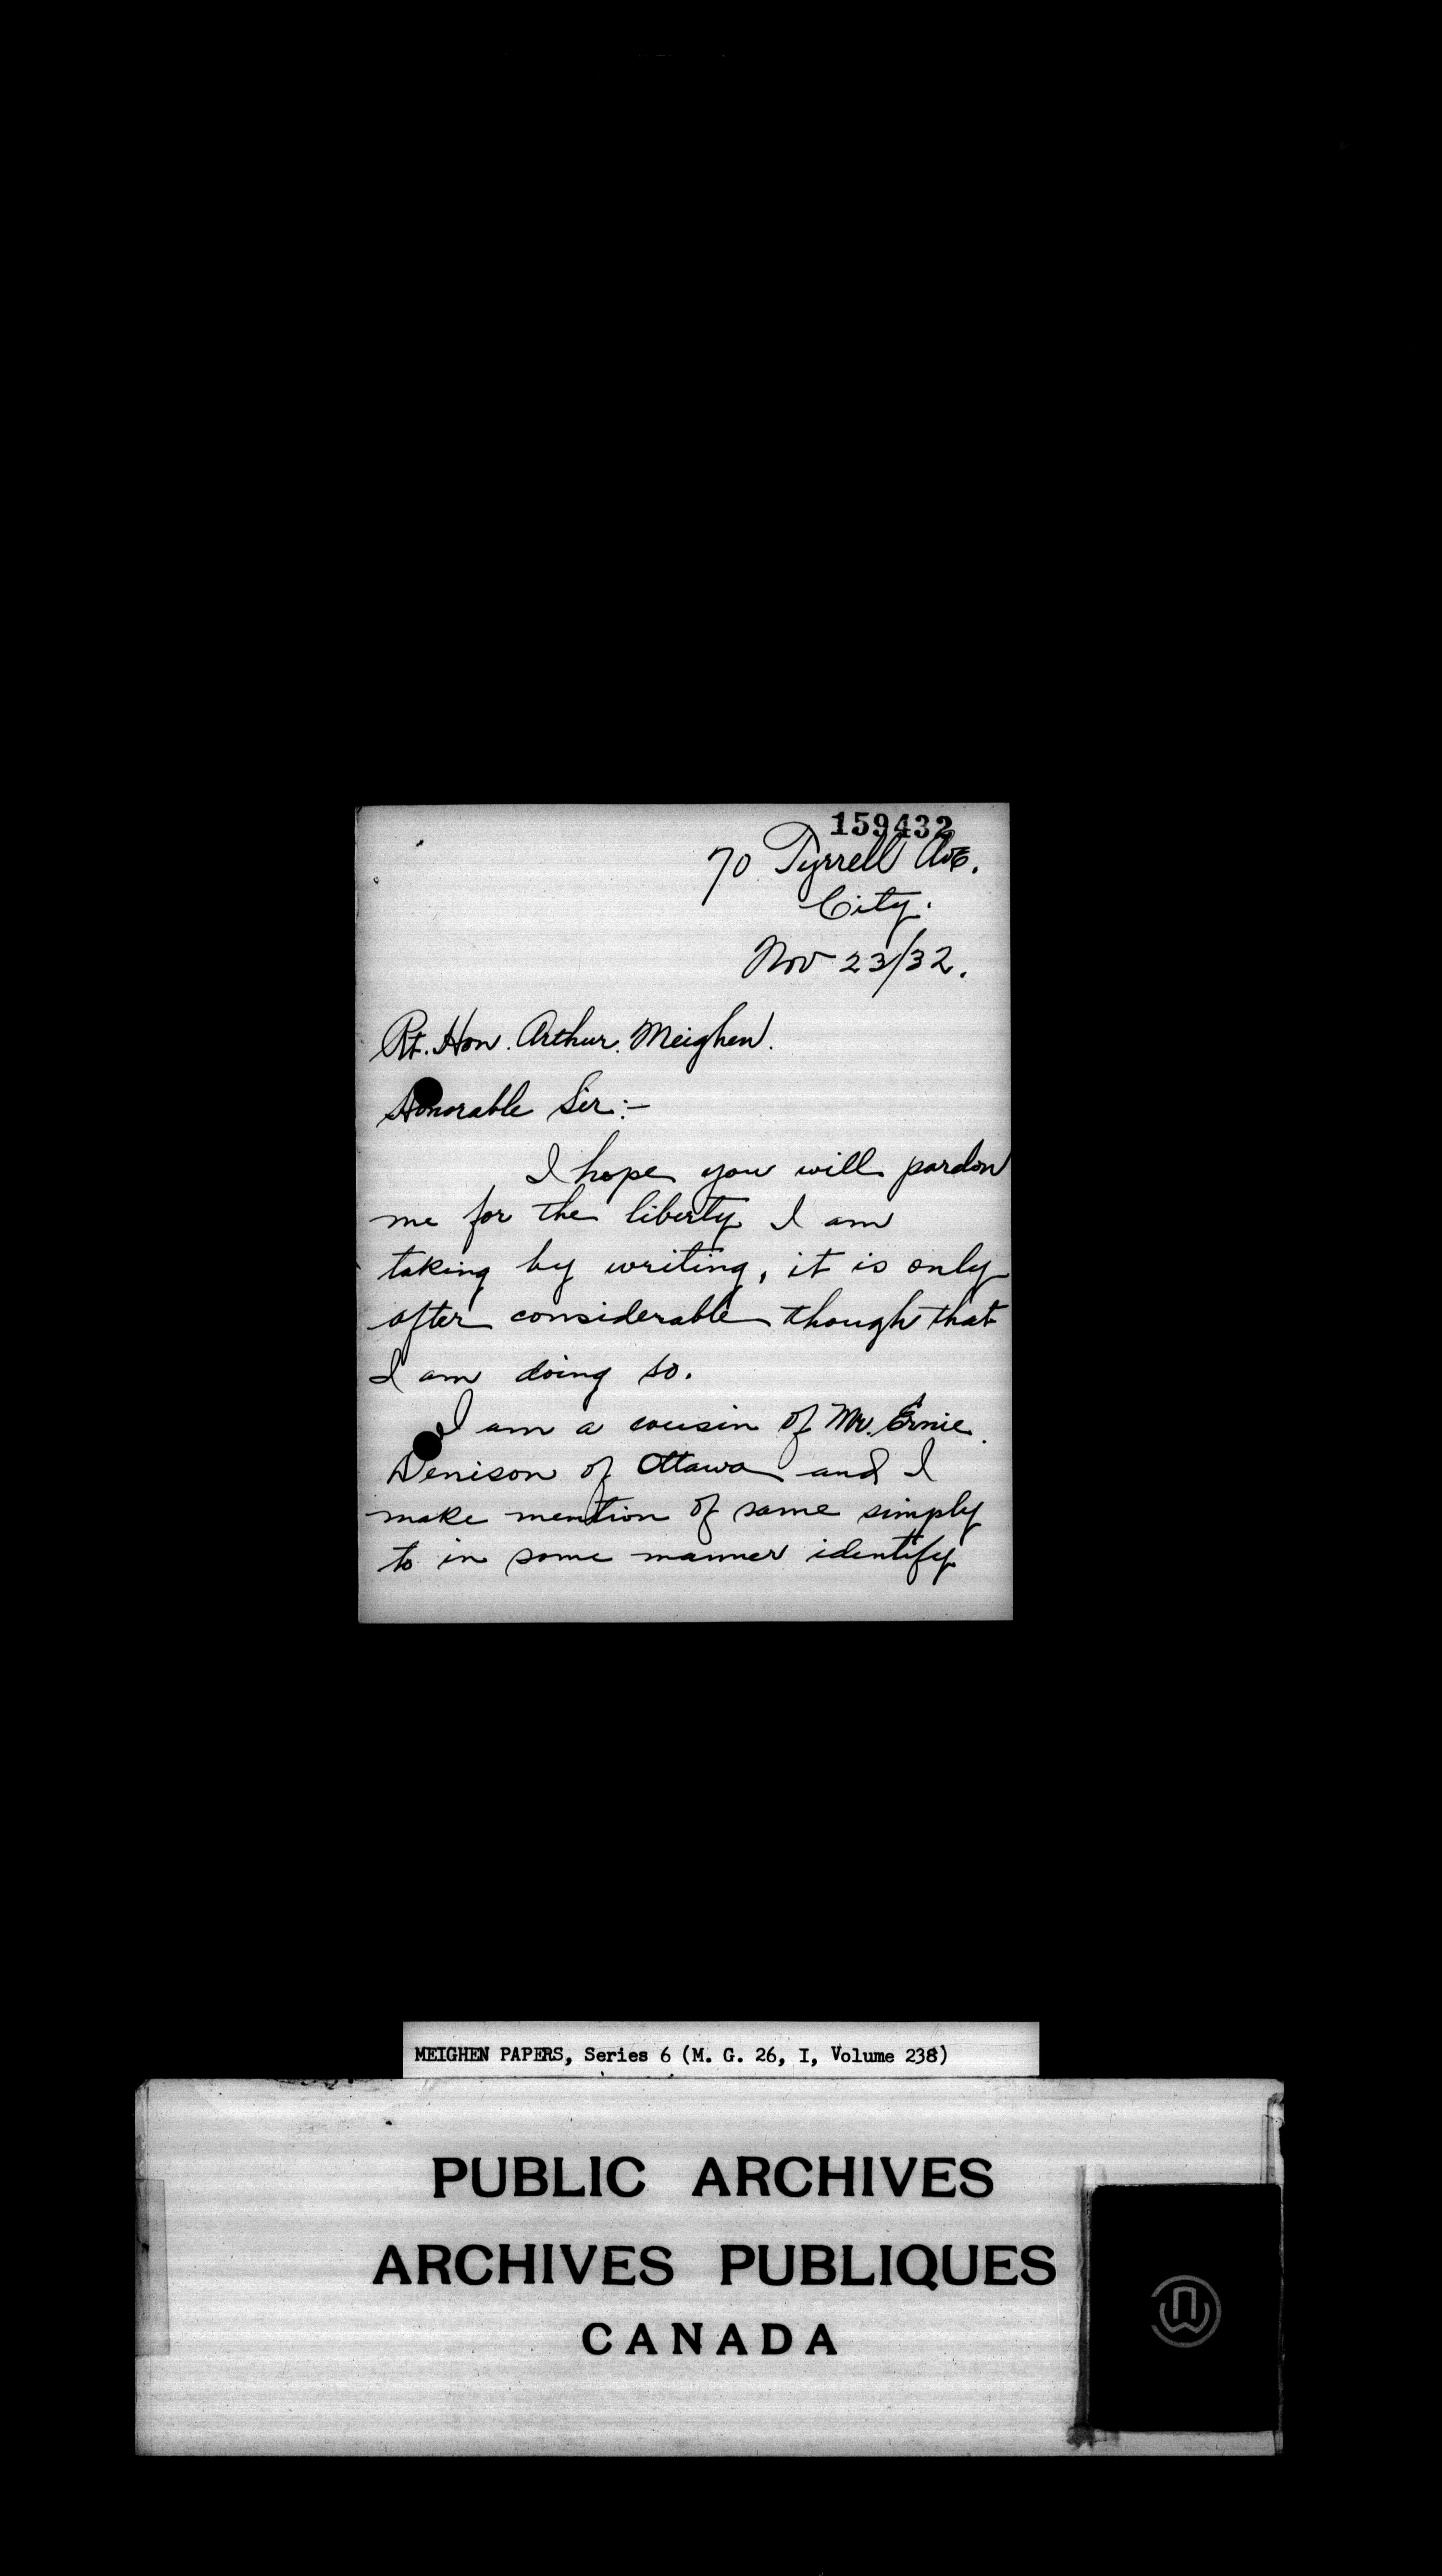 159432
70 Tyrrell Ave.
City.
Nov 23/32.
Rt. Hon. Arthur. Meighen.
Honorable Sir:-
I hope you will pardon
me for the liberty I am
taking by writing, it is only
after considerable though that
I am doing so.
I am a cousin of Mr. Ernie.
Denison of Ottawa and I
make mention of same simply
to in some manner identify
MEIGHEN PAPERS, Series 6 (M. G. 26, I, Volume 238)
PUBLIC ARCHIVES
ARCHIVES PUBLIQUES
CANADA